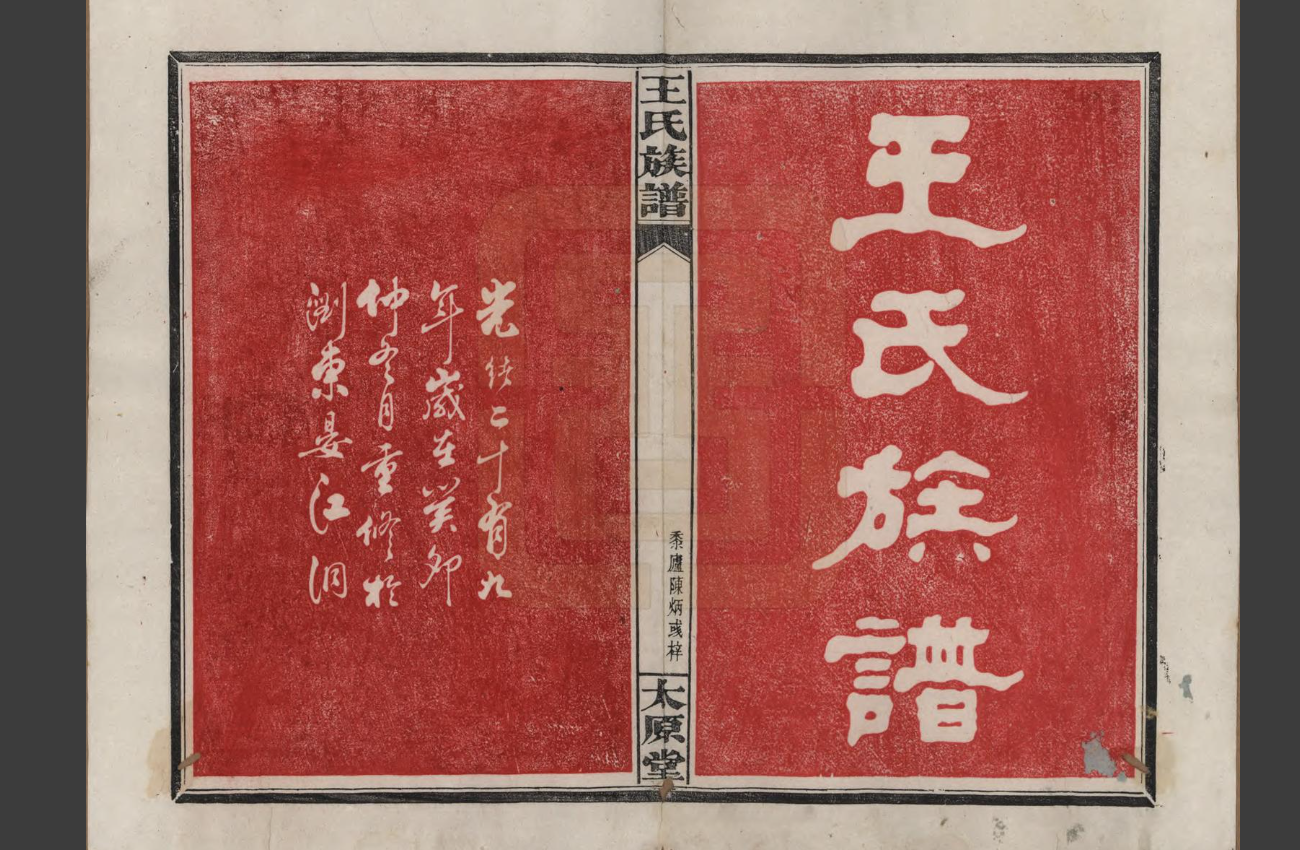 王氏族譜
王氏族譜
黍廬陳炳彧梓
太原堂
光緒二十有九
年歲在癸卯
仲冬月重修於
瀏東晏江洞